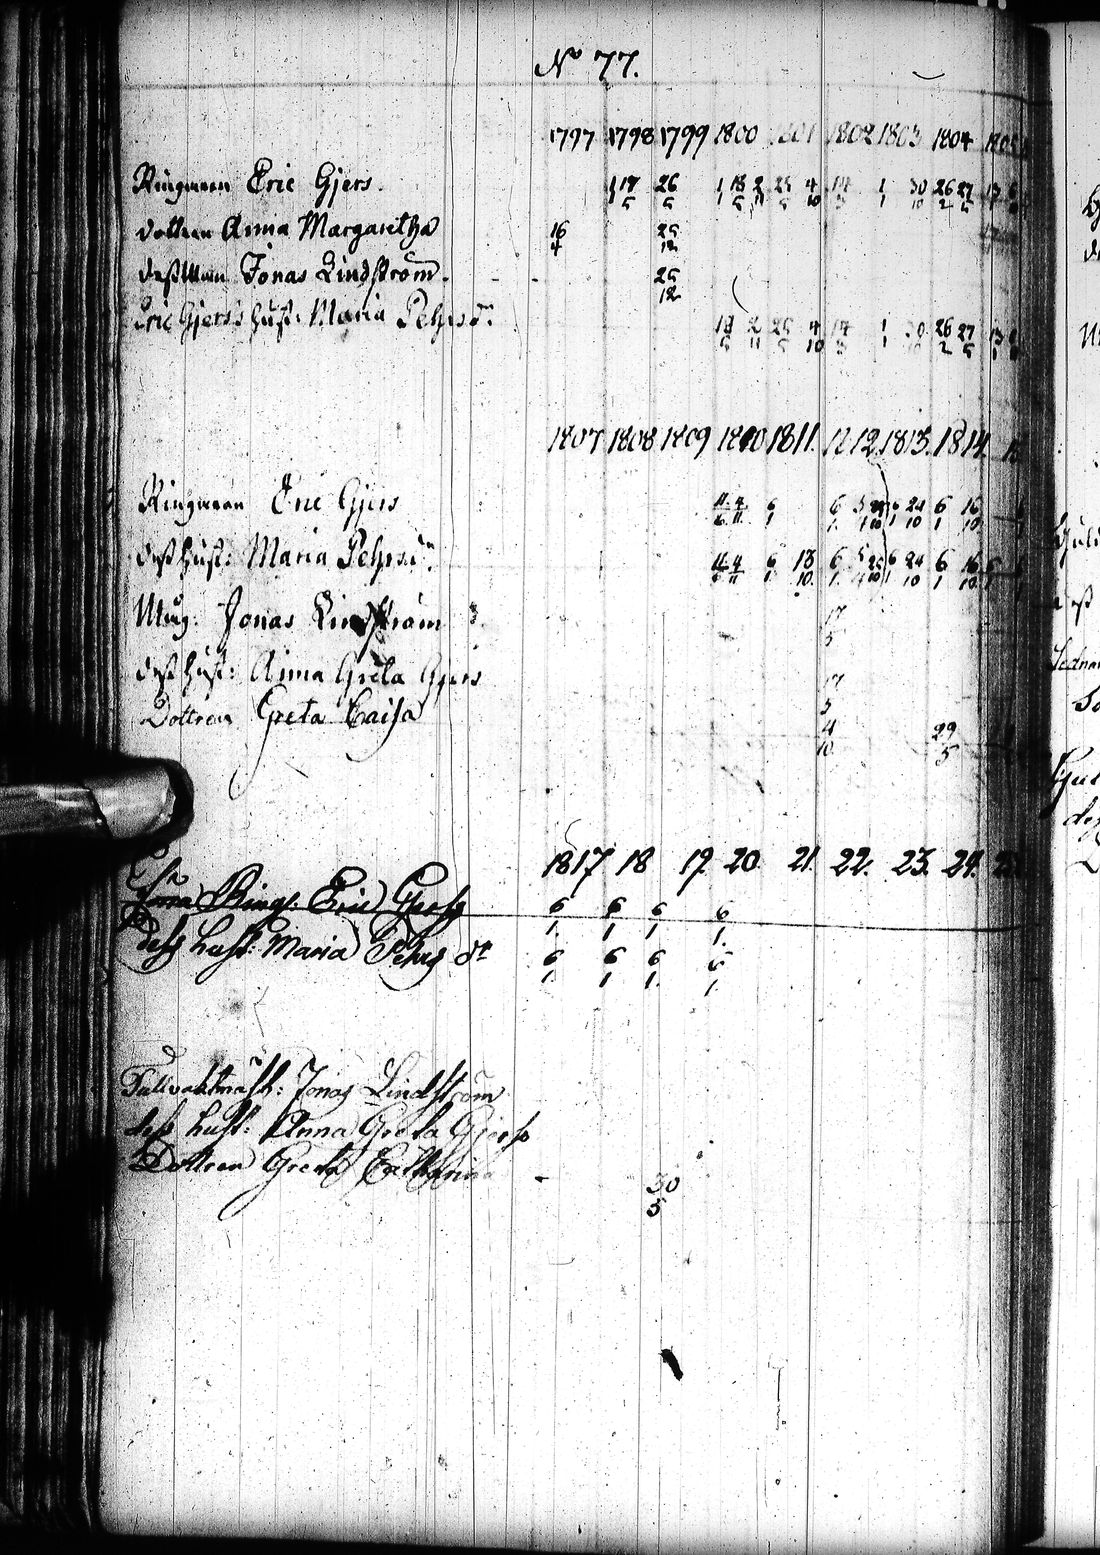 No 77.
1797 1798 1799 1800 1801 1802 1803 1804 1805
Ringaren Eric Gjers. 17 26 1 18 2 25 4 14 1 30 26 27 13
5 5 1 5 11 5 10 5 1 10 2 5
dottren Anna Margaretha 16 25
4 12
dess Man Jonas Lindström. 25
12
Eric Gjers's hust: Maria Pehrsdr. 18 2 25 4 14 1 30 26 27 13
5 11 5 10 5 1 10 2 5
1807 1808 1809 1810 1811. 1812. 1813. 1814.
Ringaren Eric Gjers 11 4 6 6 5 25 6 24 6 16
6 11 1 1 4 10 1 10 1 10
dess hust: Maria Pehrsdr. 11 4 6 18 6 5 25 6 24 6 16 6
6 11 1 10. 1 4 10 1 10 1 10 1
Jonas Lindström 17
5
dess hust: Anna Greta Gjers 17
5
Dottren Greta Caisa 4 29
10 5
1817 18 19 20 21. 22. 23. 24.
Ring. Eric Gjers 6 6 6 6
1. 1 1 1.
dess hust: Maria Pehrs dr 6 6 6 6
1. 1 1. 1.
Tullvaktmäst: Jonas Lindström
dess hust: Anna Greta Gjerss
Dottren Greta Catharina 30
5